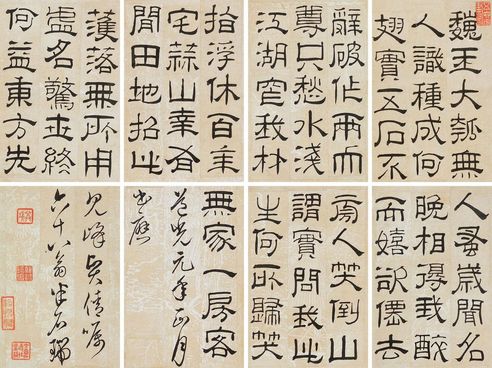 魏王大瓠無
人識種成何
翅實五石不
辭破作兩而
尊只愁水淺
江湖窄我材
指浮休百年
宅蒜山幸有
閒田地招此
濩落無所用
虛名驚世終
何益東方先
人蚤歲聞名
晚相得我醉
而嬉欲僊去
旁人笑倒山
謂實問我此
生何所歸笑
無家一房客
道光元年正月
書應
見峰賢倩囑
六十八翁